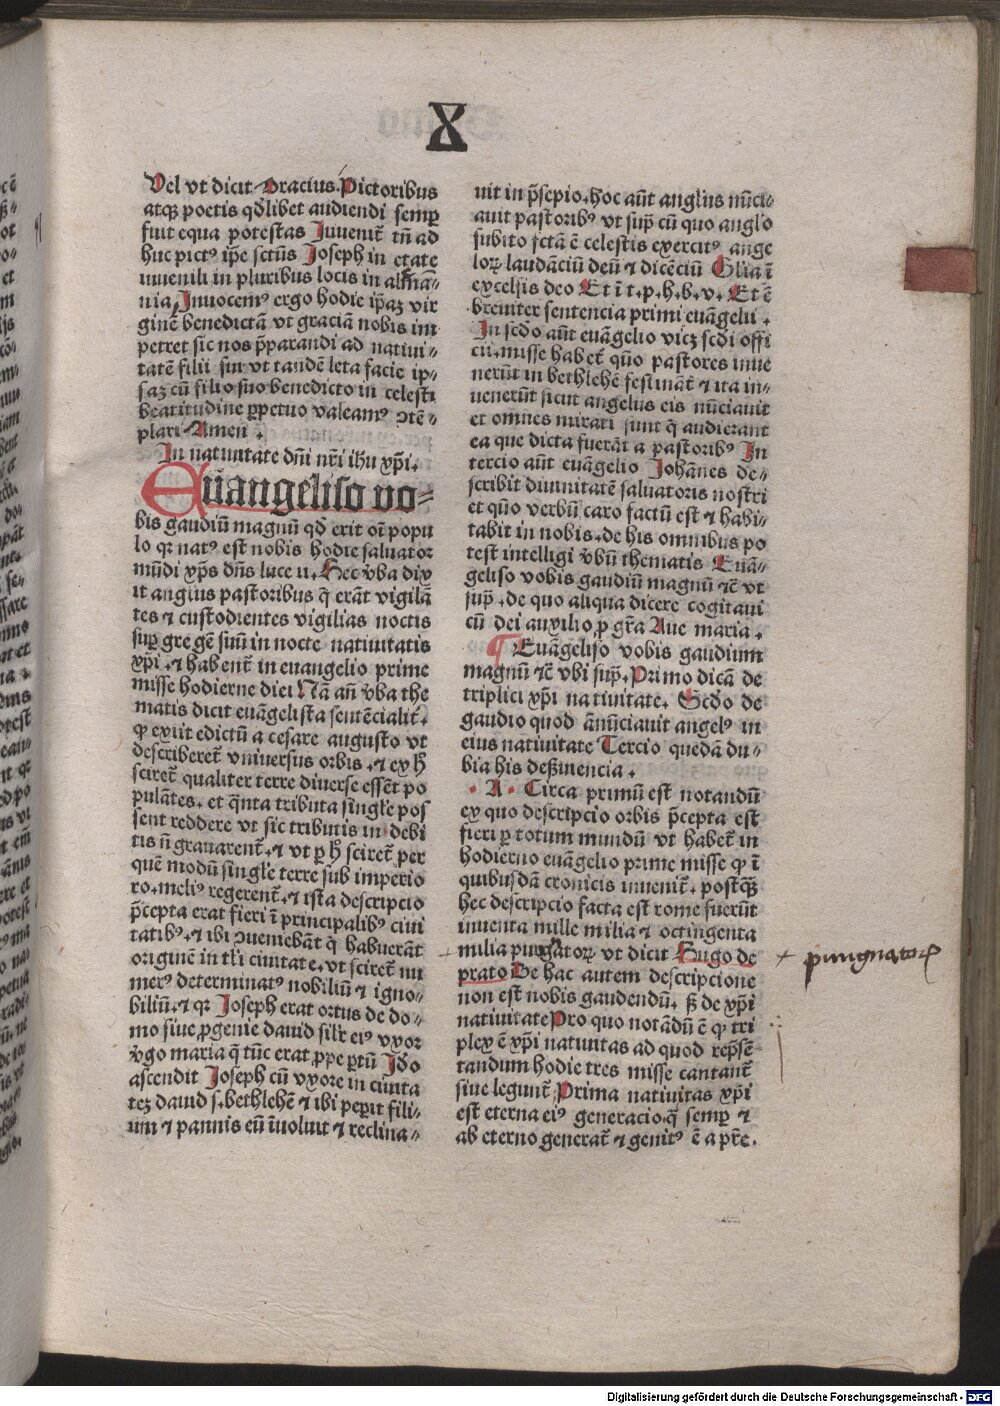 X
Vel vt dicit Oracius. Pictoribus
atqꝫ poetis qđlibet audiendi semꝑ
fuit equa potestas Juuenit̃ tñ ad
huc pictꝰ ip̃e sctũs Joseph in etate
iuuenili in pluribus locis in almã⸗
nia Inuocemꝰ ergo hodie ip̃aꝫ vir
ginẽ benedictã vt graciã nobis im
petret sic nos p̃parandi ad natiui⸗
tatẽ filii sui vt tandẽ leta facie ip⸗
saꝫ cũ filio suo benedicto in celesti
beatitudine ꝑpetuo valeamꝰ ꝯtẽ⸗
plari Amen .
In natiuitate dñi nr̃i ihu xp̃i.
Euãngeliso vo⸗
bis gaudiũ magnũ qđ erit oĩ popu
lo qꝛ natꝰ est nobis hodie saluator
mũdi xp̃s dñs luce ii. Hec v̓ba dix
it anglus pastoribus q̃ erãt vigilã
tes ⁊ custodientes vigilias noctis
suꝑ gregẽ suũ in nocte natiuitatis
xp̃i .⁊ habent̃ in euangelio prime
misse hodierne diei Nã añ v̓ba the
matis dicit euãgelista sentẽcialit̃.
ꝙ exiit edictũ a cesare augusto vt
describeret̃ vniuersus orbis .⁊ ex ħ
sciret̃ qualiter terre diuerse essẽt po
pulãtes. et q̃nta tributa singl̃e pos
sent reddere vt sic tributis in debi
tis ñ grauarent̃.⁊ vt ꝑ ħ sciret̃ per
quẽ modũ singl̃e terre sub imperio
ro.meliꝰ regerent̃.⁊ ista descripcio
p̃cepta erat fieri ĩ principalibꝰ ciui
tatibꝰ.⁊ ibi ꝯueniebãt q̃ habuerãt
originẽ in tl̃i ciuitate.vt sciret̃ nu
merꝰ determinatꝰ nobiliũ ⁊ igno⸗
biliũ.⁊ qꝛ Joseph erat ortus de do⸗
mo siue ꝓgenie dauid sil̃r eiꝰ vxor
v̓go maria q̃ tũc erat ꝓpe ꝑtũ Jđo
ascendit Joseph cũ vxore in ciuita
teꝫ dauid s. bethlehẽ ⁊ ibi peꝑit fili⸗
um ⁊ pannis eũ ĩuoluit ⁊ reclina⸗
uit in p̃sepio.hoc aũt anglus nũci⸗
auit pastoribꝰ vt sup̃ cũ quo angl̃o
subito fctã ẽ celestis exercitꝰ ange
loꝝ laudãciũ deũ ⁊ dicẽciũ Gl̃ia ĩ
excelsis deo Et ĩ t.p.h.b.v. Et ẽ
breuiter sentencia primi euãgelii .
In scđo aũt euãgelio vicꝫ scđi offi
cii.misse habet̃ quõ pastores inue
nerũt in bethlehẽ festinãt̃ ⁊ ita in⸗
uenerũt sicut angelus eis nũciauit
et omnes mirati sunt q̃ audierant
ea que dicta fuerãt a pastoribꝰ In
tercio aũt euãgelio Johãnes de⸗
scribit diuinitatẽ saluatoris nostri
et quõ verbũ caro factũ est ⁊ habi⸗
tabit in nobis.de his omnibus po
test intelligi v̓bũ thematis Euã⸗
geliso vobis gaudiũ magnũ ⁊c̃ vt
sup̃.de quo aliqua dicere cogitaui
cũ dei auxilio ꝓ gr̃a Aue maria .
¶ Euãgeliso vobis gaudium
magnũ ⁊c̃ vbi sup̃. Primo dicã de
triplici xp̃i natiuitate. Scđo de
gaudio quod ãnũciauit angelꝰ in
eius natiuitate Tercio quedã du⸗
bia his deseruencia .
· A · Circa primũ est notandũ
ex quo descripcio orbis p̃cepta est
fieri ꝑ totum mundũ vt habet̃ in
hodierno euãgelio prime misse ꝙ ĩ
quibusdã cronicis inuenit̃. postq̃ꝫ
hec descripcio facta est rome fuerũt
inuenta mille milia ⁊ octingenta
milia pungatoꝝ vt dicit Hugo de
prato De hac autem descripcione
non est nobis gaudendũ. sꝫ de xp̃i
natiuitate Pro quo notãdũ ẽ ꝙ tri
plex ẽ xp̃i natiuitas ad quod rep̃sẽ
tandum hodie tres misse cantant̃
siue legunt̃ Prima natiuitas xp̃i
est eterna eiꝰ generacio.q̃ semꝑ ⁊
ab eterno generat̃ ⁊ genitꝰ ẽ a pr̃e.
+ pungnatoꝝ
Digitalisierung gefördert durch die Deutsche Forschungsgemeinschaft - DFG